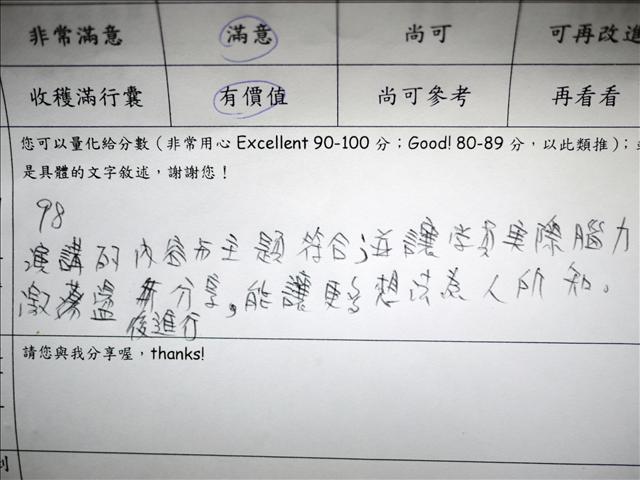 非常滿意 滿意 尚可 可再改進
收穫滿行囊 有價值 尚可參考 再看看
您可以量化給分數(非常用心 Excellent 90-100 分;Good! 80-89 分,以此類推);或
是具體的文字敘述,謝謝您!
98
演講的內容与主題符合;並讓學員實際腦力
激盪並分享,能讓更多想法為人所知。
後進行
請您與我分享喔,thanks!